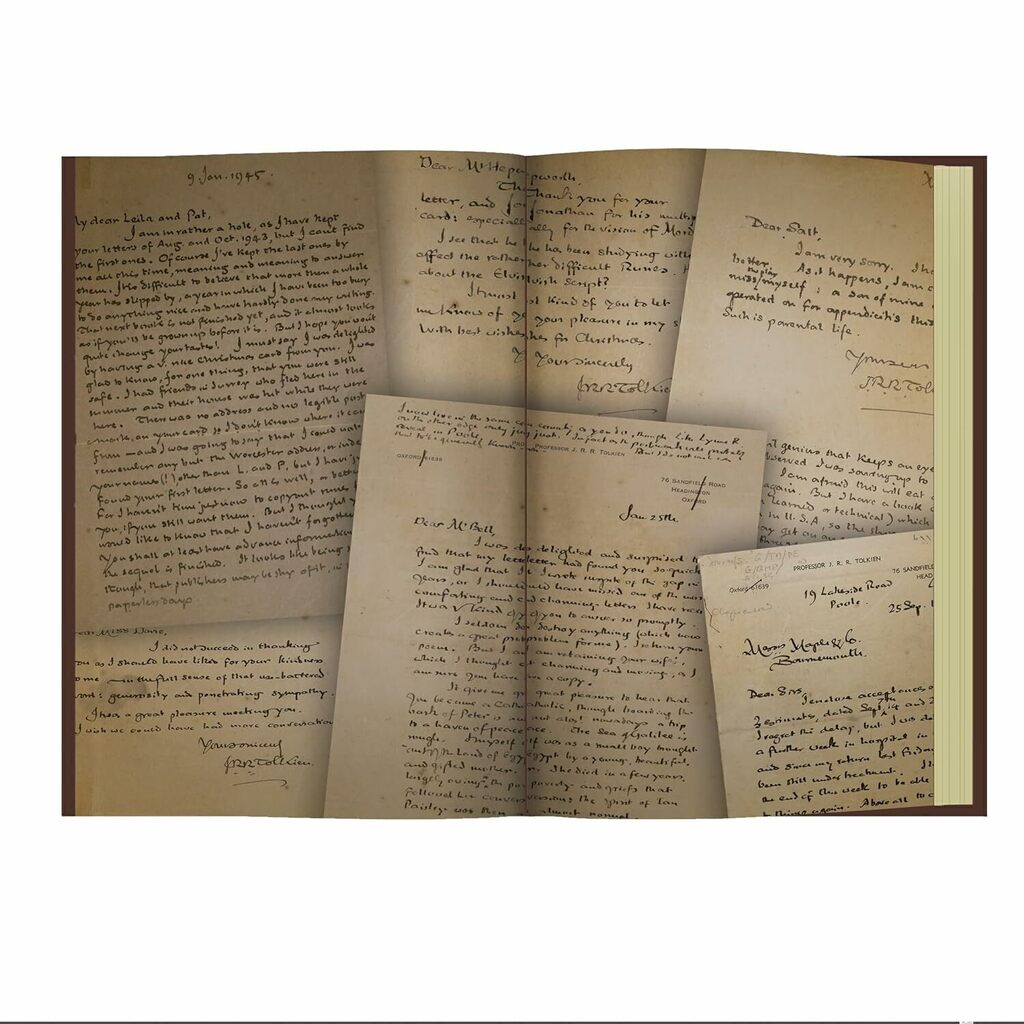 9 Jan. 1945.
My dear Leila and Pat,
I am in rather a hole, as I have kept
your letters of Aug. and Oct. 1943, but I can't find
the first ones. Of course I've kept the last ones by
me all this time, meaning and meaning to answer
them. It is difficult to believe that more than a whole
year has slipped by, a year in which I have been too busy
to do anything nice and have hardly done any writing.
That next book is not finished yet, and it almost looks
as if you'll be grown up before it is. But I hope you won't
quite change your tastes! I must say I was delighted
by having a v. nice Christmas card from you. I was
glad to know, for one thing, that you were still
safe. I had friends in Surrey who fled here in the
summer and their house was hit while they were
here. There was no address and no legible post
mark, on your card so I don't know where it came
from — and I was going to say that I could not
remember any but the Worcester address, or indeed
your names (!) other than L. and P., but I have just
found your first letter. So all is well, or better
for I haven't time just now to copy out runes for
you, if you still want them. But I thought you
would like to know that I haven't forgotten
You shall at least have advance information
the sequel is finished. It looks like being
though, that publishers may be shy of it, in
paperless days.
Dear Miss
I did not succeed in thanking
you as I should have liked for your kindness
to me — in the full sense of that
word: generosity and penetrating sympathy.
It was a great pleasure meeting you.
I wish we could have had more conversation
Yours sincerely
J.R.R. Tolkien.
Dear Mr Hepworth.
Thank you for your
letter, and Jonathan for his
card: especially for the vision of Mord
I see that he has been studying with
effect the rather difficult Runes.
about the Elvish script?
It was kind of you to let
me know of your pleasure in my
With best wishes for Christmas.
Yours sincerely
J.R.R. Tolkien
Dear Salt,
I am very sorry. I ha
As it happens, I am
myself: a son of mine
operated on for appendicitis this
Such is parental life.
Yours
J.R.R. Tol
t genius that keeps an eye
I was saving up to
I am afraid this will eat
again. But I have a
learned or technical) which
in U.S.A. so the
PROFESSOR J. R. R. TOLKIEN
OXFORD 61639
76 SANDFIELD ROAD
HEADINGTON
OXFORD
Jan. 25th.
Dear Mr Bell,
I was delighted and surprised
find that my letter had found you so quick
I am glad that I wrote in spite of the gap in
years, or I should have missed one of the most
comforting and charming letters I have rec
It was kind of you to answer so promptly.
I seldom destroy anything (which now
create a great problem for me). I return your
poem. But I am retaining your wife's,
which I thought charming and moving, as I
am sure you have a copy.
It give me great pleasure to hear that
you became a Catholic, though boarding the
bark of Peter is not alas! nowadays a trip
to a haven of peace. The sea of Galilee is
rough. I myself was as a small boy brought
out of the land of Egypt by a young, beautiful,
and gifted mother. She died in a few years,
largely owing to the poverty and griefs that
followed her conversion: the spirit of Ian
Paisley was then almost normal.
PROFESSOR J. R. R. TOLKIEN
OXFORD 61639
76 SANDFIELD
HEAD
19 Lakeside Road
Poole.
25 Sep.
Messrs Maples & Co.
Bournemouth.
Dear Sirs,
I enclose acceptances of
2 estimates, dated Sept.
I regret the delay, but I was
a further week in hospital in
and since my return last Friday
been still under treatment.
the end of this week to be able
to things again. Above all to